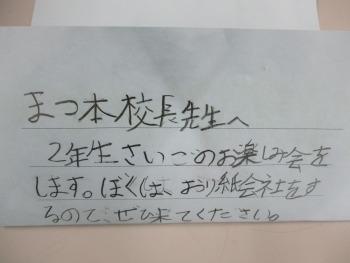 まつ本校長先生へ
2年生さいごのお楽しみ会を
します。ぼくは、おり紙会社をす
るので、ぜひ来てください。